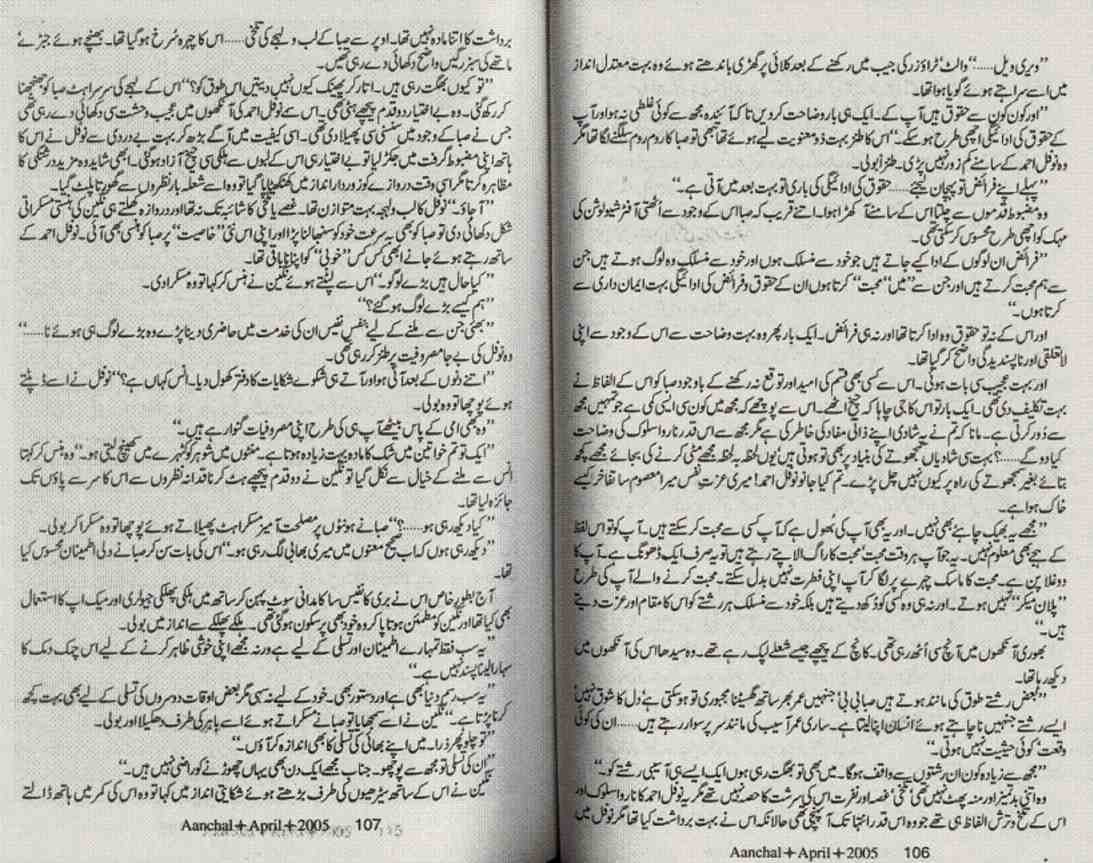 ”ویری ویل......“ والٹ ٹراؤزر کی جیب میں رکھنے کے بعد کلائی پر گھڑی باندھتے ہوئے وہ بہت معتدل انداز
میں اسے سراہتے ہوئے گویا ہوا تھا۔
”اور کون کون سے حقوق ہیں آپ کے۔ ایک ہی بار وضاحت کر دیں تاکہ آئندہ مجھ سے کوئی غلطی نہ ہو اور آپ
کے حقوق کی ادائیگی اچھی طرح ہو سکے۔“ اس کا طنز بہت ذو معنویت لیے ہوئے تھا جبھی تو صبا کا روم روم سلگنے لگا تھا مگر
وہ نوفل احمد کے سامنے کم زور نہیں پڑی۔ طنزاً بولی۔
”پہلے اپنے فرائض تو پہچان لیجئے...... حقوق کی ادائیگی کی باری تو بہت بعد میں آتی ہے۔“
وہ مضبوط قدموں سے چلتا اس کے سامنے آ کھڑا ہوا۔ اتنے قریب کہ صبا اس کے وجود سے اُٹھتی آفٹر شیو لوشن کی
مہک کو اچھی طرح محسوس کر سکتی تھی۔
”فرائض ان لوگوں کے ادا کیے جاتے ہیں جو خود سے منسلک ہوں اور خود سے منسلک وہ لوگ ہوتے ہیں جن
سے ہم محبت کرتے ہیں اور جن سے ”میں“ ”محبت“ کرتا ہوں ان کے حقوق و فرائض کی ادائیگی بہت ایمان داری سے
کرتا ہوں۔“
اور اس کے نہ تو حقوق وہ ادا کرتا تھا اور نہ ہی فرائض۔ ایک بار پھر وہ بہت وضاحت سے اس کے وجود سے اپنی
لاتعلقی اور ناپسندیدگی واضح کر گیا تھا۔
اور بہت عجیب سی بات ہوئی۔ اس سے کسی بھی قسم کی امید اور توقع نہ رکھنے کے باوجود صبا کو اس کے الفاظ نے
بہت تکلیف دی تھی۔ ایک بار تو اس کا جی چاہا کہ چیخ اٹھے۔ اس سے پوچھے کہ مجھ میں کون سی ایسی کمی ہے جو تمہیں مجھ
سے دُور کرتی ہے۔ مانا کہ تم نے یہ شادی اپنے ذاتی مفاد کی خاطر کی ہے مگر مجھ سے اس قدر ناروا سلوک کی وضاحت
کیا دو گے......؟ بہت سی شادیاں سمجھوتے کی بنیاد پر بھی تو ہوتی ہیں یوں لحظہ بہ لحظہ مجھے مٹی کرنے کی بجائے مجھے کچھ
بتائے بغیر سمجھوتے کی راہ پر کیوں نہیں چل پڑے۔ تم کیا جانو نوفل احمد! میری عزتِ نفس میرا معصوم سا تفاخر کیسے
خاک ہوا ہے۔
”مجھے یہ بھیک چاہئے بھی نہیں۔ اور یہ بھی آپ کی بھول ہے کہ آپ کسی سے محبت کر سکتے ہیں۔ آپ کو تو اس لفظ
کے ہجے بھی معلوم نہیں۔ یہ جو آپ ہر وقت محبت محبت کا راگ الاپتے رہتے ہیں تو یہ صرف ایک ڈھونگ ہے۔ آپ کا
دوغلا پن ہے۔ محبت کا ماسک چہرے پر لگا کر آپ اپنی فطرت نہیں بدل سکتے۔ محبت کرنے والے آپ کی طرح
”پلان میکر“ نہیں ہوتے۔ اور نہ ہی وہ کسی کو دُکھ دیتے ہیں بلکہ خود سے منسلک ہر رشتے کو اس کا مقام اور عزت دیتے
ہیں۔“
بھوری آنکھوں میں آنچ سی اُٹھ رہی تھی۔ کانچ کے پیچھے جیسے شعلے لپک رہے تھے۔ وہ سیدھا اس کی آنکھوں میں
دیکھ رہا تھا۔
”بعض رشتے طوق کی مانند ہوتے ہیں صبا بی بی! جنہیں عمر بھر ساتھ گھسیٹنا مجبوری تو ہو سکتی ہے دل کا شوق نہیں
ایسے رشتے جنہیں نا چاہتے ہوئے انسان اپنا لیتا ہے۔ ساری عمر آسیب کی مانند سر پر سوار رہتے ہیں......ان کی کوئی
وقعت، کوئی حیثیت نہیں ہوتی۔“
”مجھ سے زیادہ کون ان رشتوں سے واقف ہوگا۔ میں بھی تو بھگت رہی ہوں ایک ایسے ہی آسیبی رشتے کو۔“
وہ اتنی بدتمیز اور منہ پھٹ نہیں تھی، تلخی، غصہ اور نفرت اس کی سرشت کا حصہ نہیں تھے مگر یہ نوفل احمد کا ناروا سلوک اور
اس کے تلخ و ترش الفاظ ہی تھے جو وہ اس قدر انتہا تک آ پہنچی تھی حالانکہ اس نے بہت برداشت کیا تھا مگر نوفل میں
Aanchal+April+2005 106
برداشت کا اتنا مادہ نہیں تھا۔ اوپر سے صبا کے لب و لہجے کی تلخی......اس کا چہرہ سُرخ ہو گیا تھا۔ بھنچے ہوئے جبڑے
ماتھے کی سبز رگیں واضح دکھائی دے رہی تھیں۔
”تو کیوں بھگت رہی ہیں۔ اتار کر پھینک کیوں نہیں دیتیں اس طوق کو؟“ اس کے لہجے کی سرسراہٹ صبا کو جھنجھنا
کر رکھ گئی۔ وہ بے اختیار دو قدم پیچھے ہٹی تھی۔ اسے نوفل احمد کی آنکھوں میں عجیب وحشت سی دکھائی دے رہی تھی
جس نے صبا کے وجود میں سنسنی سی پھیلا دی تھی۔ اسی کیفیت میں آگے بڑھ کر بہت بے دردی سے نوفل نے اس کا
ہاتھ اپنی مضبوط گرفت میں جکڑ لیا تو بے اختیار ہی اس کے لبوں سے ہلکی سی چیخ آزاد ہو گئی۔ ابھی شاید وہ مزید درشتگی کا
مظاہرہ کرتا مگر اسی وقت دروازے کو زوردار انداز میں کھٹکھٹایا گیا تو وہ اسے شعلہ بار نظروں سے گھورتا پلٹ گیا۔
”آ جاؤ۔“ نوفل کا لب و لہجہ بہت متوازن تھا۔ غصے یا تلخی کا شائبہ تک نہ تھا اور دروازہ کھلتے ہی نگین کی ہنستی مسکراتی
شکل دکھائی دی تو صبا کو بھی بہ سرعت خود کو سنبھالنا پڑا اور اپنی اس نئی ”خاصیت“ پر صبا کو ہنسی بھی آئی۔ نوفل احمد کے
ساتھ رہتے ہوئے جانے ابھی کس کس ”خوبی“ کو اپنانا باقی تھا۔
”کیا حال ہیں بڑے لوگو۔“ اس سے لپٹتے ہوئے نگین نے ہنس کر کہا تو وہ مسکرا دی۔
”ہم کیسے بڑے لوگ ہو گئے؟“
”بھئی جن سے ملنے کے لیے بنفسِ نفیس ان کی خدمت میں حاضری دینا پڑے وہ بڑے لوگ ہی ہوئے نا......“
وہ نوفل کی بے جا مصروفیت پر طنز کر رہی تھی۔
”اتنے دنوں کے بعد آئی ہو اور آتے ہی شکوے شکایات کا دفتر کھول دیا۔ انس کہاں ہے؟“ نوفل نے اسے ڈپٹتے
ہوئے پوچھا تو وہ بولی۔
”وہ بھی امی کے پاس بیٹھے آپ ہی کی طرح اپنی مصروفیات گنوا رہے ہیں۔“
”ایک تو تم خواتین میں شک کا مادہ بہت زیادہ ہوتا ہے۔ منٹوں میں شوہر کو کٹہرے میں کھینچ لیتی ہو۔“ وہ ہنس کر کہتا
انس سے ملنے کے خیال سے نکل گیا تو نگین نے دو قدم پیچھے ہٹ کر ناقدانہ نظروں سے اس کا سر سے پاؤں تک
جائزہ لیا تھا۔
”کیا دیکھ رہی ہو......؟“ صبا نے ہونٹوں پر مصلحت آمیز مسکراہٹ پھیلاتے ہوئے پوچھا تو وہ مسکرا کر بولی۔
”دیکھ رہی ہوں کہ اب صحیح معنوں میں میری بھابی لگ رہی ہو۔“ اس کی بات سن کر صبا نے دلی اطمینان محسوس کیا
تھا۔
آج بطور خاص اس نے بری کا نفیس سا کامدانی سوٹ پہن کر ساتھ میں ہلکی پھلکی جیولری اور میک اپ کا استعمال
بھی کیا تھا اور نگین کو مطمئن ہوتا پا کر وہ خود بھی پر سکون ہو گئی تھی۔ ہلکے پھلکے سے انداز میں بولی۔
”یہ سب فقط تمہارے اطمینان اور تسلی کے لیے ہے ورنہ مجھے اپنی خوشی ظاہر کرنے کے لیے اس چمک دمک کا
سہارا لینا پسند نہیں ہے۔“
”یہ سب رسمِ دنیا بھی ہے اور دستور بھی۔ خود کے لیے نہ سہی مگر بعض اوقات دوسروں کی تسلی کے لیے بھی بہت کچھ
کرنا پڑتا ہے۔“ نگین نے اسے سمجھایا تو صبا نے مسکراتے ہوئے اسے باہر کی طرف دھکیلا اور بولی۔
”تو چلو پھر ذرا۔ میں اپنے بھائی کی تسلی کا بھی اندازہ کر آؤں۔“
”ان کی تسلی تو مجھ سے پوچھو۔ جناب مجھے ایک دن بھی یہاں چھوڑنے کو راضی نہیں ہیں۔“
نگین نے اس کے ساتھ سیڑھیوں کی طرف بڑھتے ہوئے شکایتی انداز میں کہا تو وہ اس کی کمر میں ہاتھ ڈالتے
Aanchal+April+2005 107